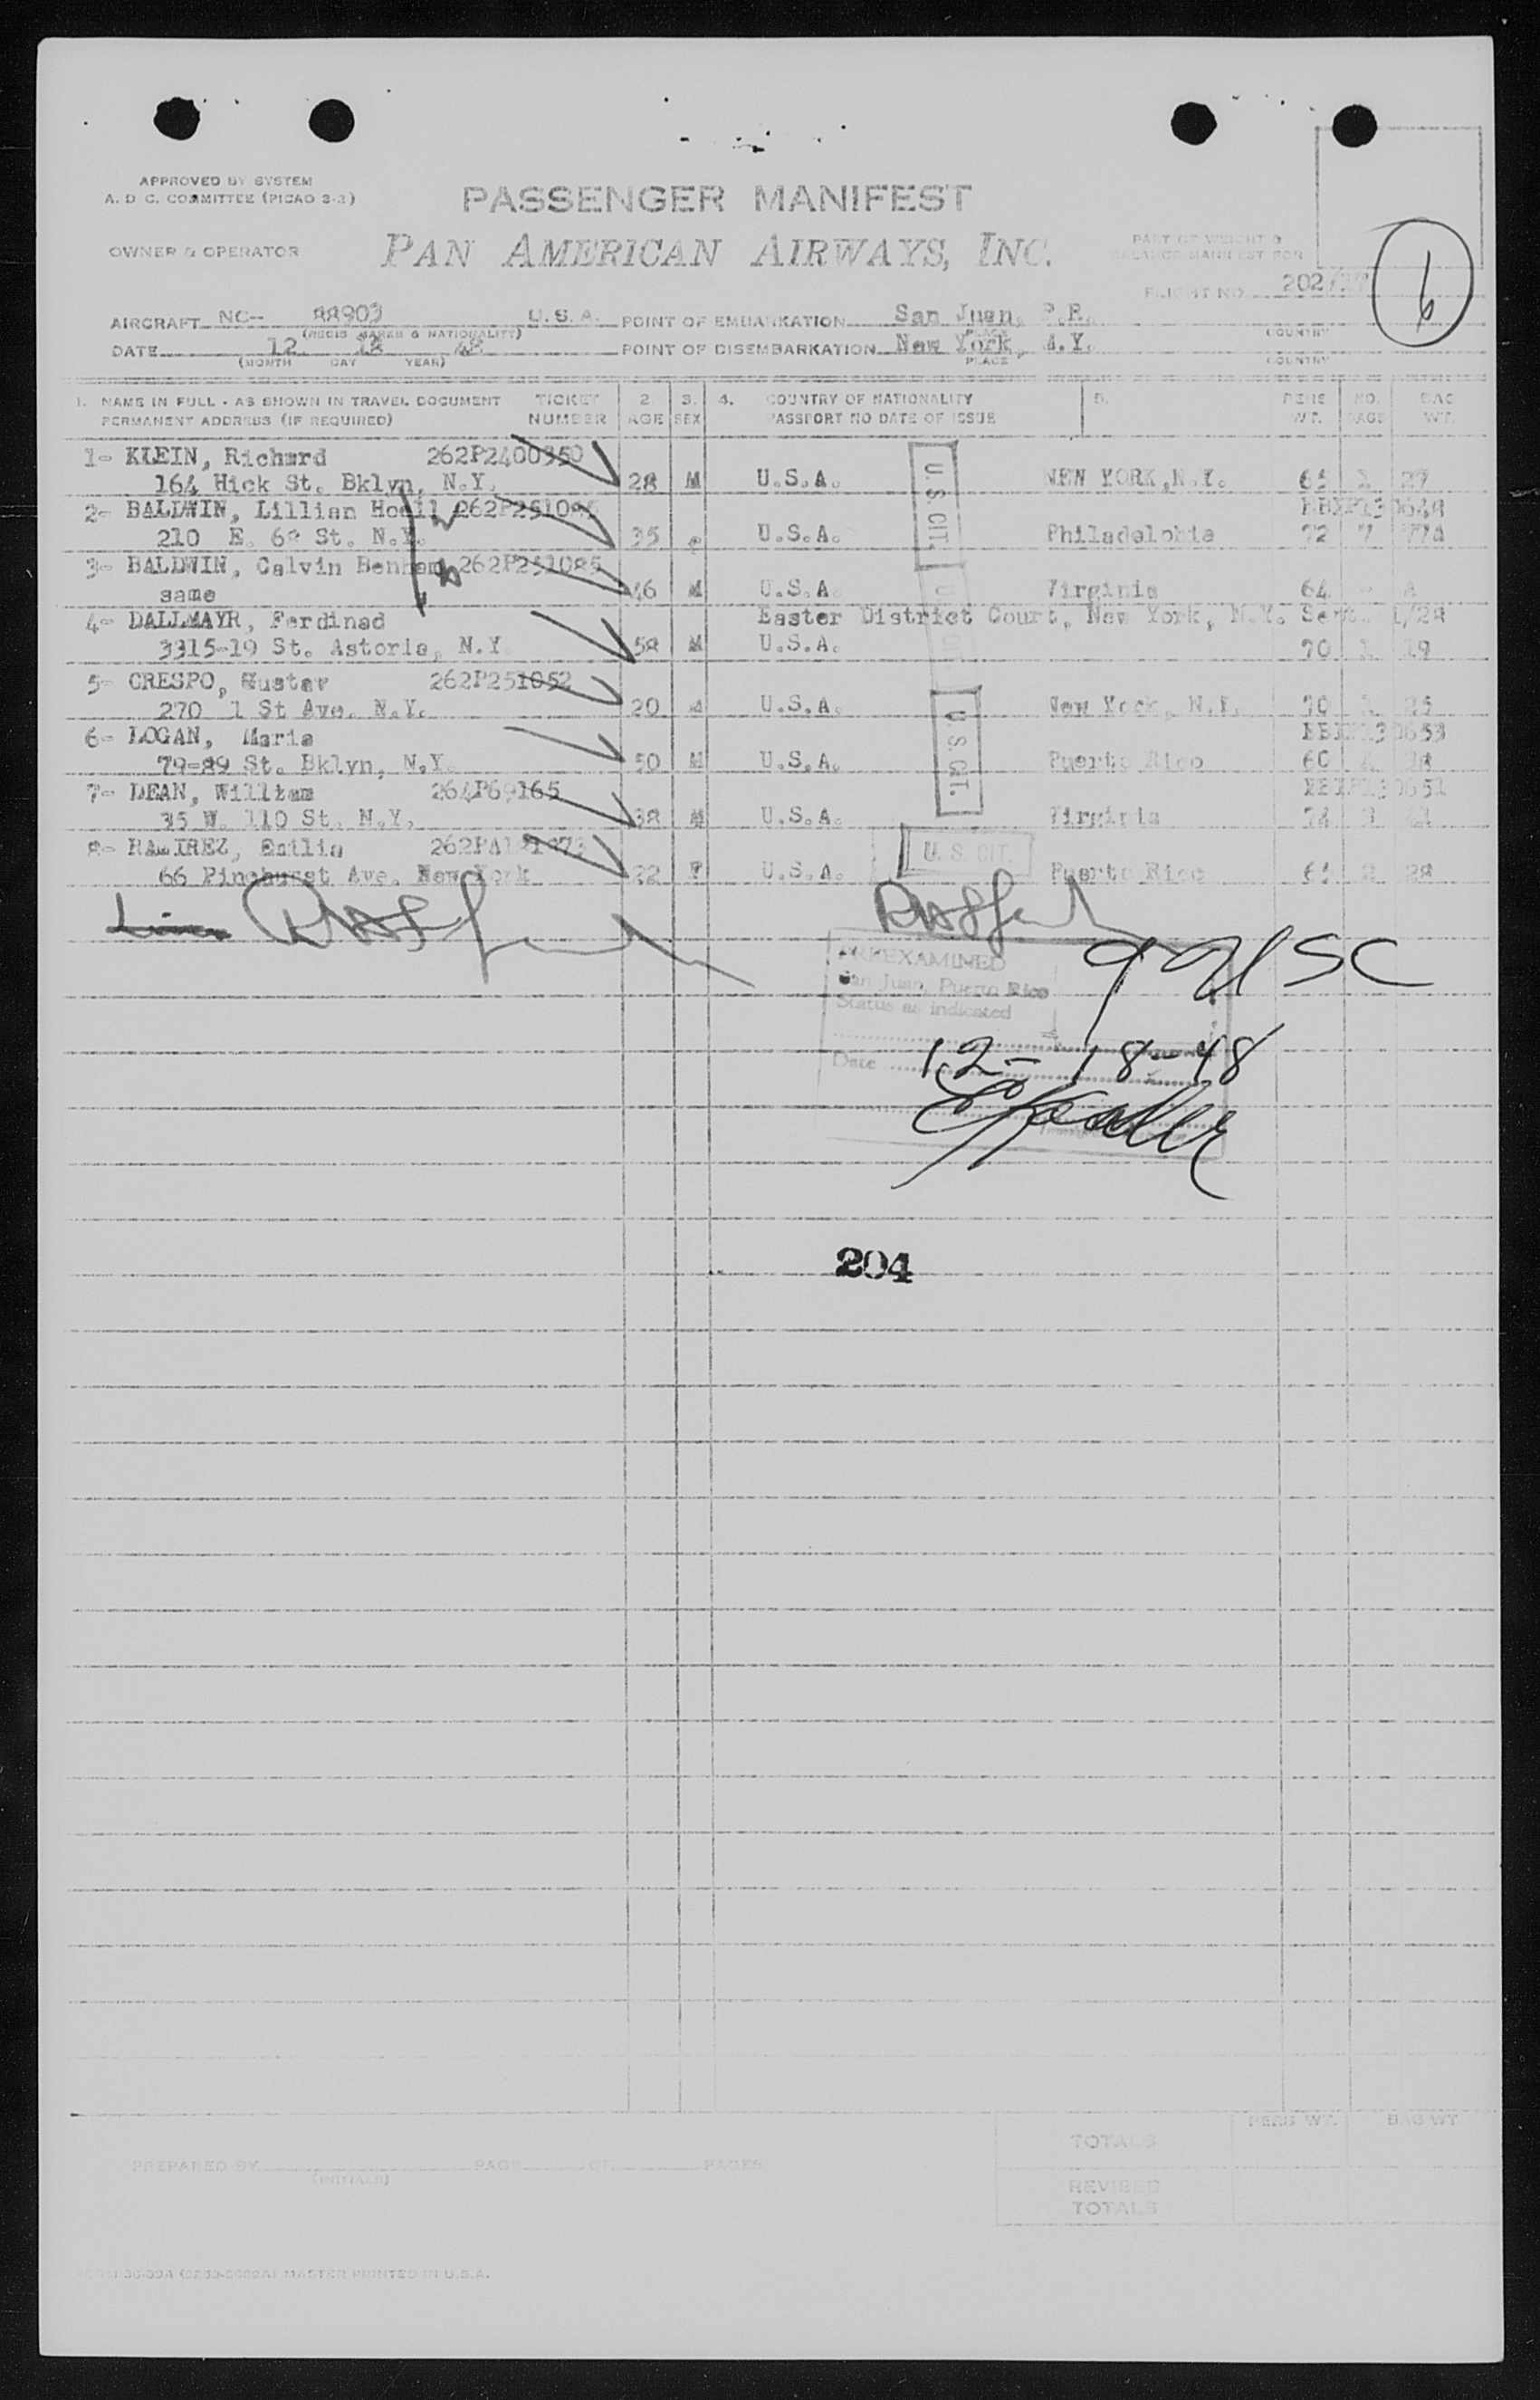 APPROVED BY SYSTEM
A. D C. COMMITTEE (PICAO 3-2)
PASSENGER MANIFEST
OWNER & OPERATOR
PAN AMERICAN AIRWAYS, INC.
PART OF WEIGHT &
BALANCE MANIFEST FOR
FLIGHT NO 202
6
AIRCRAFT NC-- 88903 U.S.A. POINT OF EMBARKATION San Juan, P.R.
(REGIS MARKS & NATIONALITY) PLACE COUNTRY
DATE 12 18 48 POINT OF DISEMBARKATION New York, N.Y.
(MONTH DAY YEAR) PLACE COUNTRY
1. NAME IN FULL - AS SHOWN IN TRAVEL DOCUMENT TICKET 2. 3. 4. COUNTRY OF NATIONALITY 5. PERS NO. BAG
PERMANENT ADDRESS (IF REQUIRED) NUMBER AGE SEX PASSPORT NO DATE OF ISSUE WT. BAGS WT.
1- KLEIN, Richard 262P2400350
164 Hick St. Bklyn, N.Y. 28 M U.S.A. NEW YORK, N.Y.
2- BALDWIN, Lillian
210 E. 68 St. N.Y. 35 U.S.A. Philadelphia 72 7
3- BALDWIN, Calvin Benham 262P251085
same 46 M U.S.A. Virginia 64
4- DALLMAYR, Ferdinad Easter District Court, New York, N.Y.
3315-19 St. Astoria, N.Y. 58 M U.S.A. 70 1 19
5- CRESPO, Gustav 262P251052
270 1 St Ave. N.Y. 20 M U.S.A. New York, N.Y. 70
6- LOGAN, Maria
79-89 St. Bklyn, N.Y. 50 M U.S.A. Puerto Rico 60
7- DEAN, William 264P69165
35 W. 110 St. N.Y. 38 M U.S.A. Virginia 74
8- RAMIREZ, Emilia
66 Pinehurst Ave. New York 22 F U.S.A. Puerto Rico 28
U. S. CIT.
U. S. CIT.
U. S. CIT.
PREEXAMINED
San Juan, Puerto Rico
Status as indicated
USC
Date 12-18-48
204
TOTALS PERS WT. BAG WT
PREPARED BY PAGE OF PAGES
(INITIALS)
REVISED
TOTALS
MASTER PRINTED IN U.S.A.